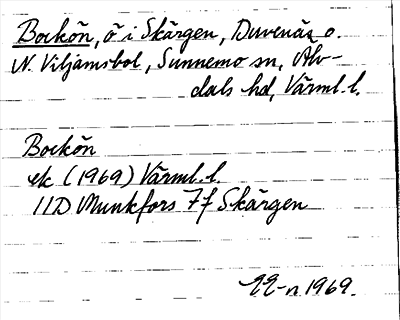 Bockön, ö i Skärgen, Duvenäs o.
N. Viljamsbol, Sunnemo sn, Älv-
dals hd, Värml. l.
Bockön
ek (1969) Värml. l.
11D Munkfors 7f Skärgen
1969.